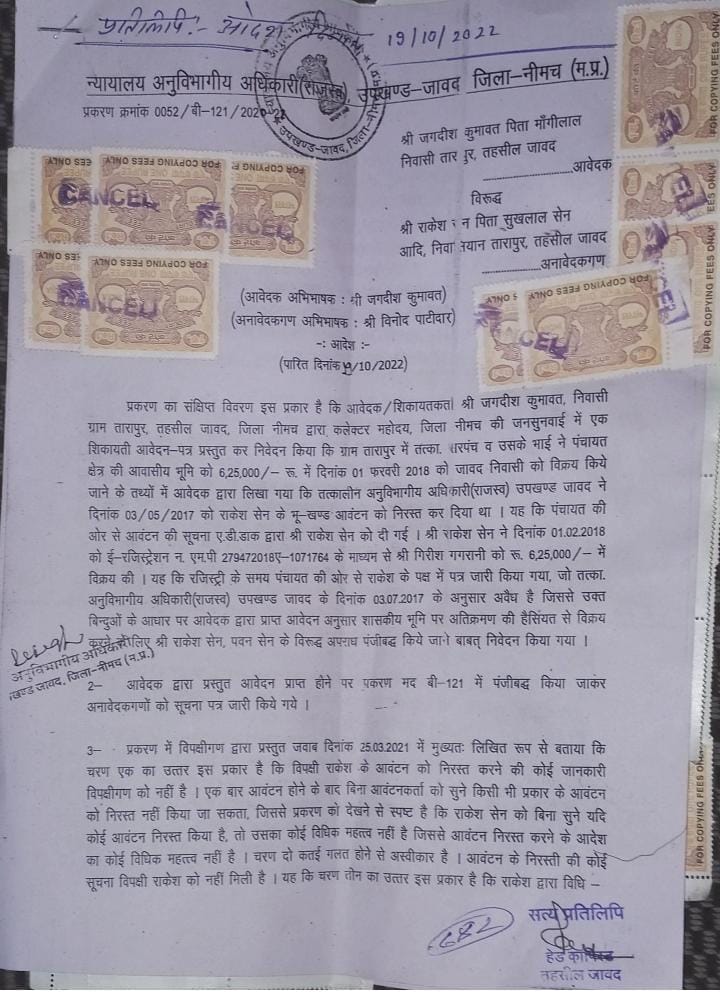 प्रतिलिपि:- आदेश
19/10/2022
न्यायालय अनुविभागीय अधिकारी(राजस्व), उपखण्ड-जावद जिला-नीमच (म.प्र.)
प्रकरण क्रमांक 0052/बी-121/2020-
उपखण्ड-जावद, जिला-नीमच
श्री जगदीश कुमावत पिता माँगीलाल
निवासी तारापुर, तहसील जावद
आवेदक
विरूद्ध
श्री राकेश सेन पिता सुखलाल सेन
आदि, निवासीयान तारापुर, तहसील जावद
अनावेदकगण
FOR COPYING FEES ONLY
CANCEL
(आवेदक अभिभाषक : श्री जगदीश कुमावत)
(अनावेदकगण अभिभाषक : श्री विनोद पाटीदार)
-: आदेश :-
(पारित दिनांक 19/10/2022)
प्रकरण का संक्षिप्त विवरण इस प्रकार है कि आवेदक/शिकायतकर्ता श्री जगदीश कुमावत, निवासी
ग्राम तारापुर, तहसील जावद, जिला नीमच द्वारा कलेक्टर महोदय, जिला नीमच की जनसुनवाई में एक
शिकायती आवेदन-पत्र प्रस्तुत कर निवेदन किया कि ग्राम तारापुर में तत्का. सरपंच व उसके भाई ने पंचायत
क्षेत्र की आवासीय भूमि को 6,25,000/- रू. में दिनांक 01 फरवरी 2018 को जावद निवासी को विक्रय किये
जाने के तथ्यों में आवेदक द्वारा लिखा गया कि तत्कालीन अनुविभागीय अधिकारी(राजस्व) उपखण्ड जावद ने
दिनांक 03/05/2017 को राकेश सेन के भू-खण्ड आवंटन को निरस्त कर दिया था । यह कि पंचायत की
ओर से आवंटन की सूचना ए.डी.डाक द्वारा श्री राकेश सेन को दी गई । श्री राकेश सेन ने दिनांक 01.02.2018
को ई-रजिस्ट्रेशन न. एम.पी 279472018ए-1071764 के माध्यम से श्री गिरीश गगरानी को रू. 6,25,000/- में
विक्रय की । यह कि रजिस्ट्री के समय पंचायत की ओर से राकेश के पक्ष में पत्र जारी किया गया, जो तत्का.
अनुविभागीय अधिकारी(राजस्व) उपखण्ड जावद के दिनांक 03.07.2017 के अनुसार अवैध है जिससे उक्त
बिन्दुओं के आधार पर आवेदक द्वारा प्राप्त आवेदन अनुसार शासकीय भूमि पर अतिक्रमण की हैसियत से विक्रय
करने के लिए श्री राकेश सेन, पवन सेन के विरूद्ध अपराध पंजीबद्ध किये जाने बाबत् निवेदन किया गया ।
अनुविभागीय अधिकारी
खण्ड जावद, जिला-नीमच (म.प्र.)
2- आवेदक द्वारा प्रस्तुत आवेदन प्राप्त होने पर प्रकरण मद बी-121 में पंजीबद्ध किया जाकर
अनावेदकगणों को सूचना पत्र जारी किये गये ।
3- प्रकरण में विपक्षीगण द्वारा प्रस्तुत जवाब दिनांक 25.03.2021 में मुख्यतः लिखित रूप से बताया कि
चरण एक का उत्तर इस प्रकार है कि विपक्षी राकेश के आवंटन को निरस्त करने की कोई जानकारी
विपक्षीगण को नहीं है । एक बार आवंटन होने के बाद बिना आवंटनकर्ता को सुने किसी भी प्रकार के आवंटन
को निरस्त नहीं किया जा सकता, जिससे प्रकरण को देखने से स्पष्ट है कि राकेश सेन को बिना सुने यदि
कोई आवंटन निरस्त किया है, तो उसका कोई विधिक महत्व नहीं है जिससे आवंटन निरस्त करने के आदेश
का कोई विधिक महत्व नहीं है । चरण दो कतई गलत होने से अस्वीकार है । आवंटन के निरस्ती की कोई
सूचना विपक्षी राकेश को नहीं मिली है । यह कि चरण तीन का उत्तर इस प्रकार है कि राकेश द्वारा विधि -
682
सत्य प्रतिलिपि
हेड कापिस्ट
तहसील जावद